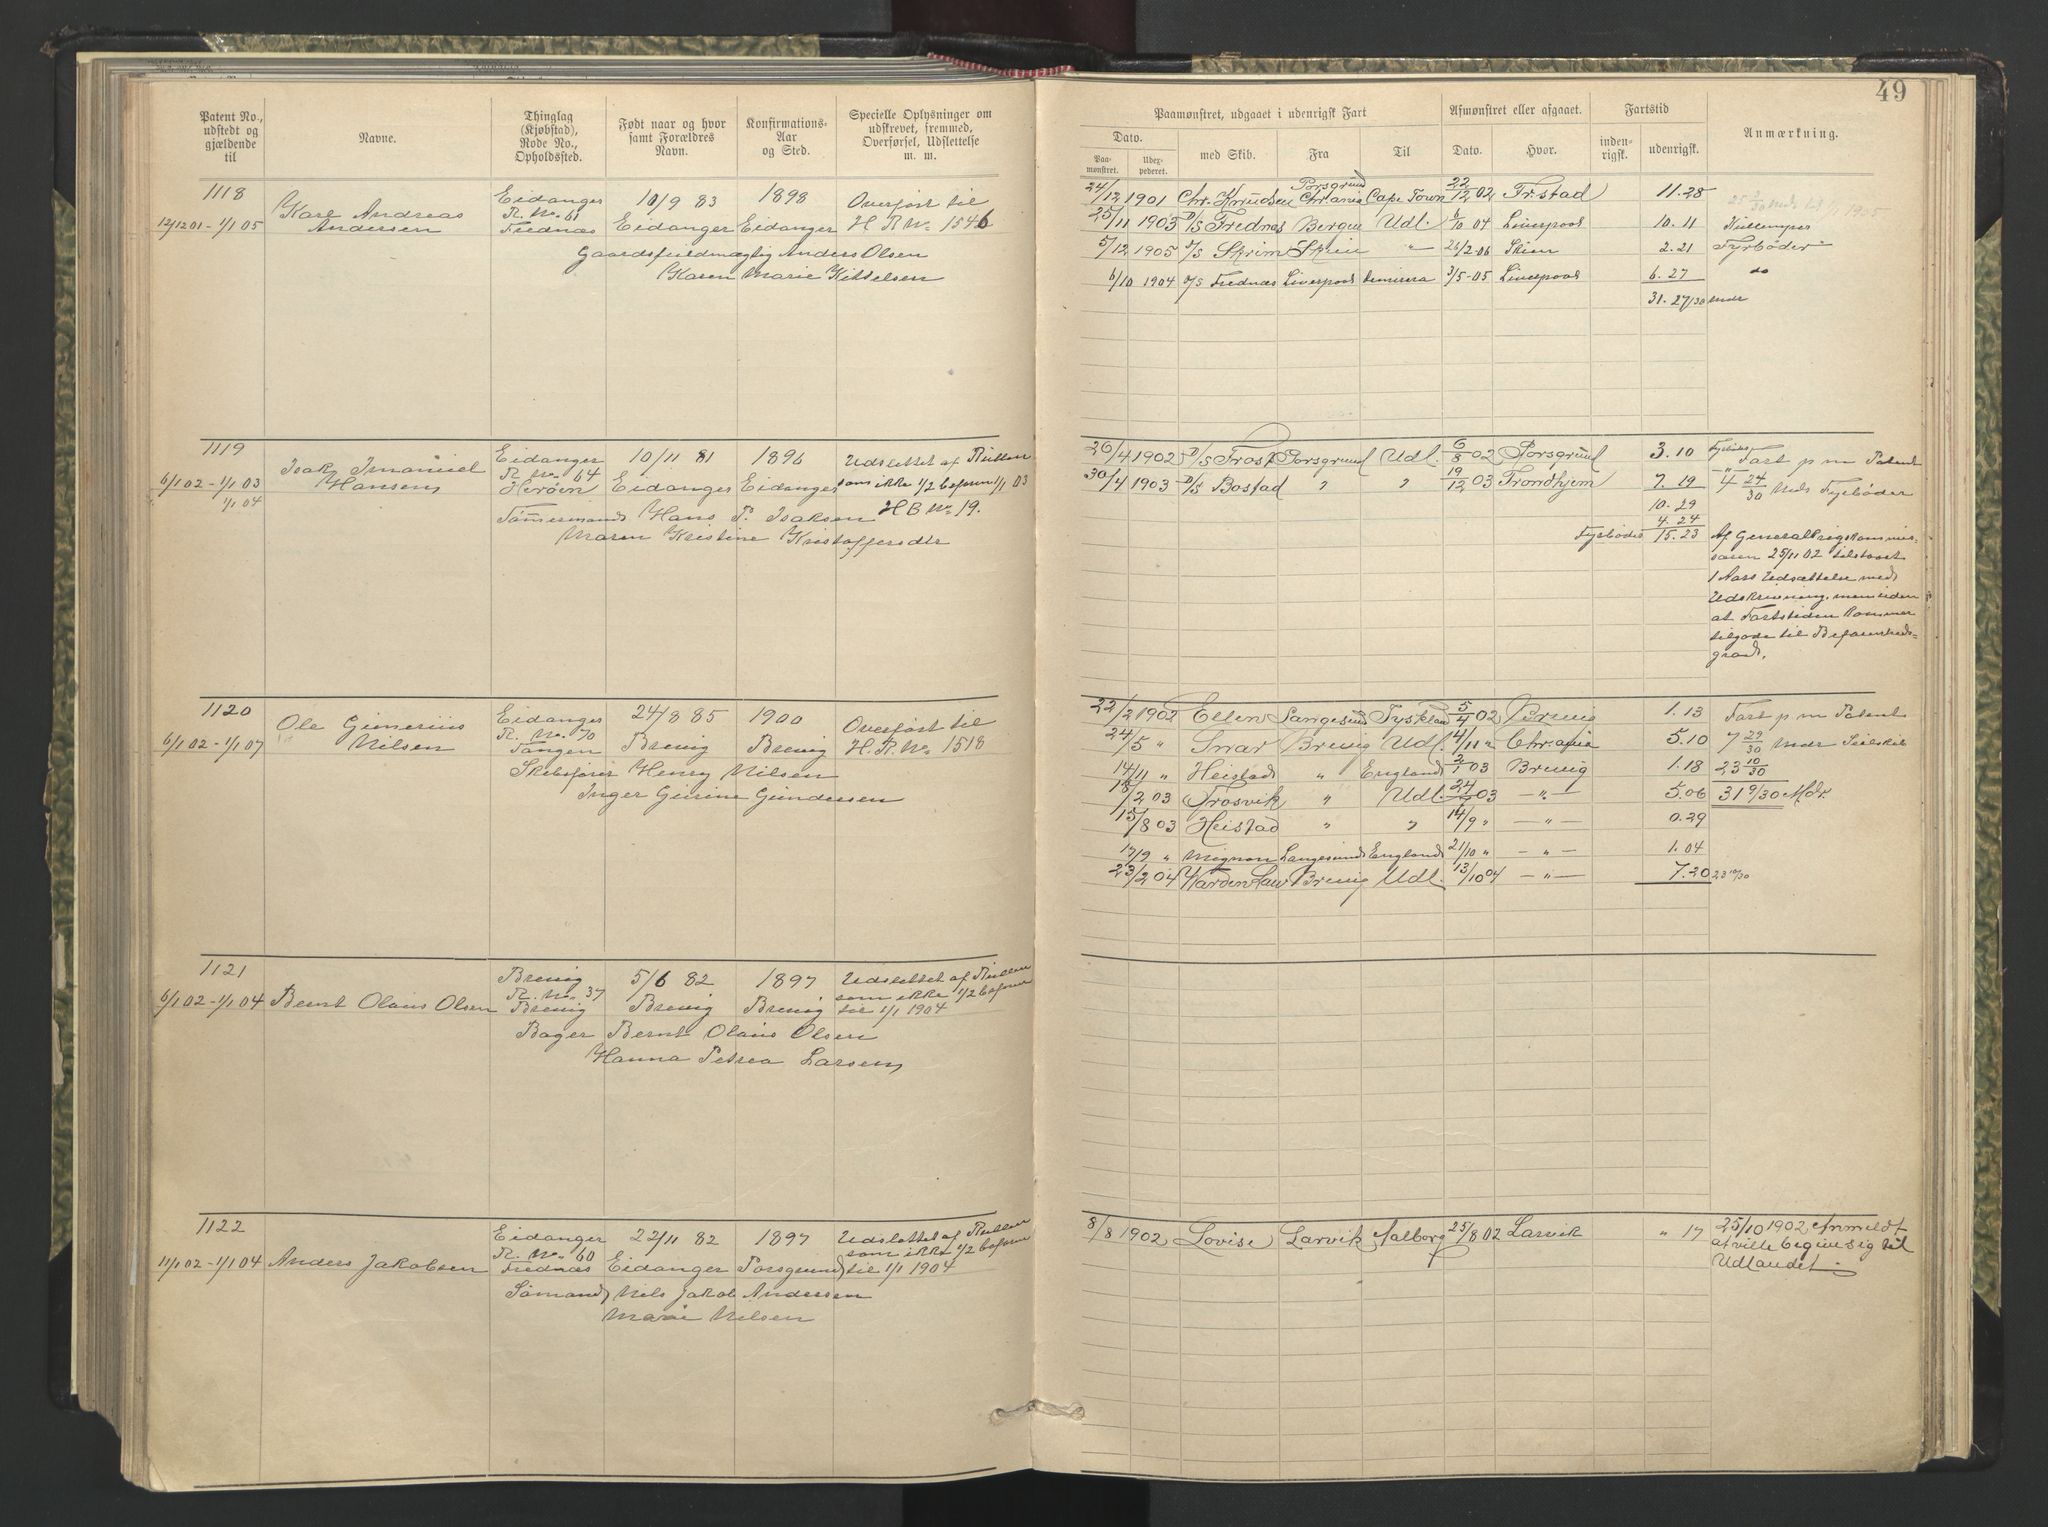 49
Patent No., udstedt og gjældende til
Navne.
Thinglag (Kjøbstad), Rode No., Opholdssted.
Født naar og hvor samt Forældres Navn.
Konfirmations-Aar og Sted.
Specielle Oplysninger om udskrevet, fremmed, Overførsel, Udslettelse m. m.
Paamønstret, udgaaet i udenrigsk Fart
Afmønstret eller afgaaet.
Fartstid
Anmærkning.
Dato.
Paa-mønstret.
Udex-pederet.
med Skib.
Fra
Til
Dato.
Hvor.
inden-rigsk.
udenrigsk.
1118
12/12 01 - 1/1 05
Karl Andreas
Andersen
Eidanger
R. No. 61
Frednæs
10/9 83
Eidanger
1898
Eidanger
Overført til
H R No 1546
Gaardsfuldmægtig Anders Olsen
Karen Marie Kittelsen
24/12 1901 Chr. Knudsen Porsgrund Chr.ania Cape Town 22/12 02 Fr.stad 11.28
25/11 1903 D/S Frednæs Bergen Udl. 6/10 04 Liverpool 10.11 Kullemper
5/12 1905 D/S Skrim Skien " 26/2-06 Skien 2.21 Fyrbøder
6/10 1904 D/S Frednæs Liverpool 3/5-05 Liverpool 6.27 do
31.27/30 mdr
1119
6/1 02 - 1/1 03
1/1 04
Isak Imanuel
Hansen
Eidanger
R. No. 64
Herøen
10/11 81
Eidanger
1896
Eidanger
Udslettet af Rullen
som ikke 1/2 befaren 1/1 03
H B No 19.
Tømmermand Hans P. Isaksen
Maren Kristine Kristoffersdtr
26/4 1902 D/S Frost Porsgrund Udl. 6/8 02 Porsgrund 3.10
30/4 1903 D/S Bostad " " 19/12 03 Trondhjem 7.19
10.29
4.24
Fyrbøder 15.23
Fyrbøder
Fart p m Patent
4 24/30 Mdr Fyrbøder
Af Generalkrigskommis-
saren 25/11 02 tilstaaet
1 Aars Udsættelse med
Udskrivning, men uden
at Fartstiden kommer
tilgode til Befarenheds-
grad.
1120
6/1 02 - 1/1 07
Ole Gunerius
Nilsen
Eidanger
R. No. 70
Tangen
24/8 85
Brevig
1900
Brevig
Overført til
H. R. No. 1518
Skibsfører Henry Nilsen
Inger Gurine Gundersen
22/2 1902 Ellen Langesund Tyskland 5/4 02 Brevig 1.13 Fart p m Patent
24/5 " Snar Brevig Udl. 4/11 " Chr.ania 5.10 7 29/30 Mdr Seilskib
14/11 " Heistad " England 2/1 03 Brevig 1.18 23 10/30
18/2 03 Frosvik " Udl. 24/7 03 — " — 5.06 31 9/30 Mdr.
15/8 03 Heistad " " 14/9 " — " — 0.29
17/9 " Mignon Langesund England 21/10 " — " — 1.04
23/2 04 Brevig Udl. 13/10 04 — " — 7.20 23 10/30
1121
6/1 02 - 1/1 04
Bernt Olaus Olsen
Brevig
R. No. 37
Brevig
5/6 82
Brevig
1897
Brevig
Udslettet af Rullen
som ikke 1/2 befaren
til 1/1 1904
Bager Bernt Olaus Olsen
Hanna Petrea Larsen
1122
11/1 02 - 1/1 04
Anders Jakobsen
Eidanger
R. No. 60
Frednæs
22/11 82
Eidanger
1897
Porsgrund
Udslettet af Rullen
som ikke 1/2 befaren
til 1/1 1904
Sømand Nils Jakob Andersen
Marie Nilsen
8/8 1902 Lovise Larvik Aalborg 25/8 02 Larvik " 17
25/10 1902 Anmeldt
at ville begive sig til
Udlandet.